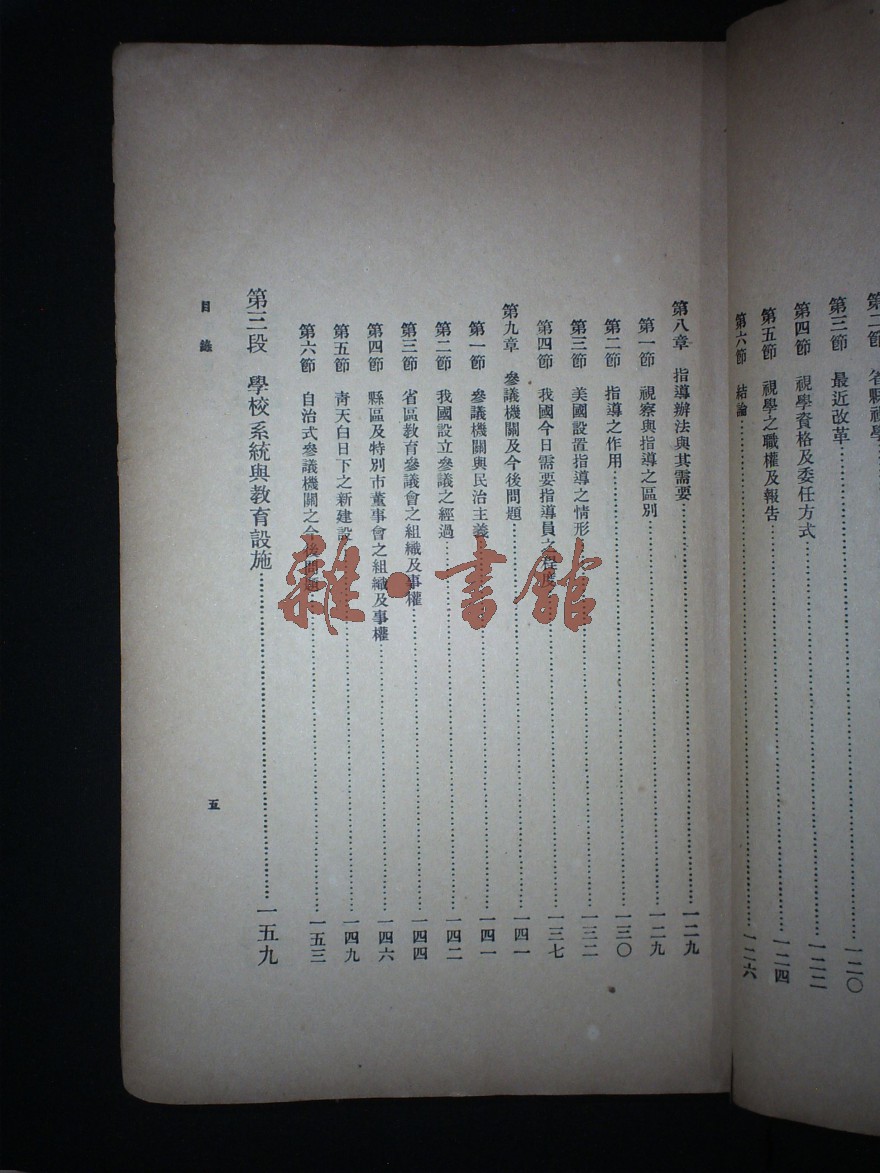 第二節　省縣視學
第三節　最近改革……一二〇
第四節　視學資格及委任方式……一二二
第五節　視學之職權及報告……一二四
第六節　結論……一二六
第八章　指導辦法與其需要……一二九
第一節　視察與指導之區別……一二九
第二節　指導之作用……一三〇
第三節　美國設置指導之情形……一三二
第四節　我國今日需要指導員之程度……一三七
第九章　參議機關及今後問題……一四一
第一節　參議機關與民治主義……一四一
第二節　我國設立參議之經過……一四二
第三節　省區教育參議會之組織及事權……一四四
第四節　縣區及特別市董事會之組織及事權……一四六
第五節　青天白日下之新建設……一四九
第六節　自治式參議機關之今後問題……一五三
第三段　學校系統與教育設施……一五九
目錄
五
雜·書館